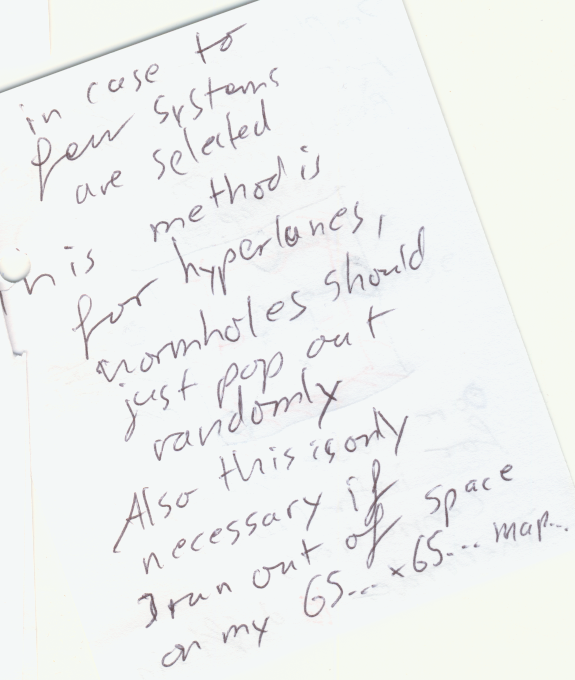 in case to
few systems
are selected
his method is
for hyperlanes,
wormholes should
just pop out
randomly
Also this is only
necessary if
I run out of space
on my 65... x 65... map...